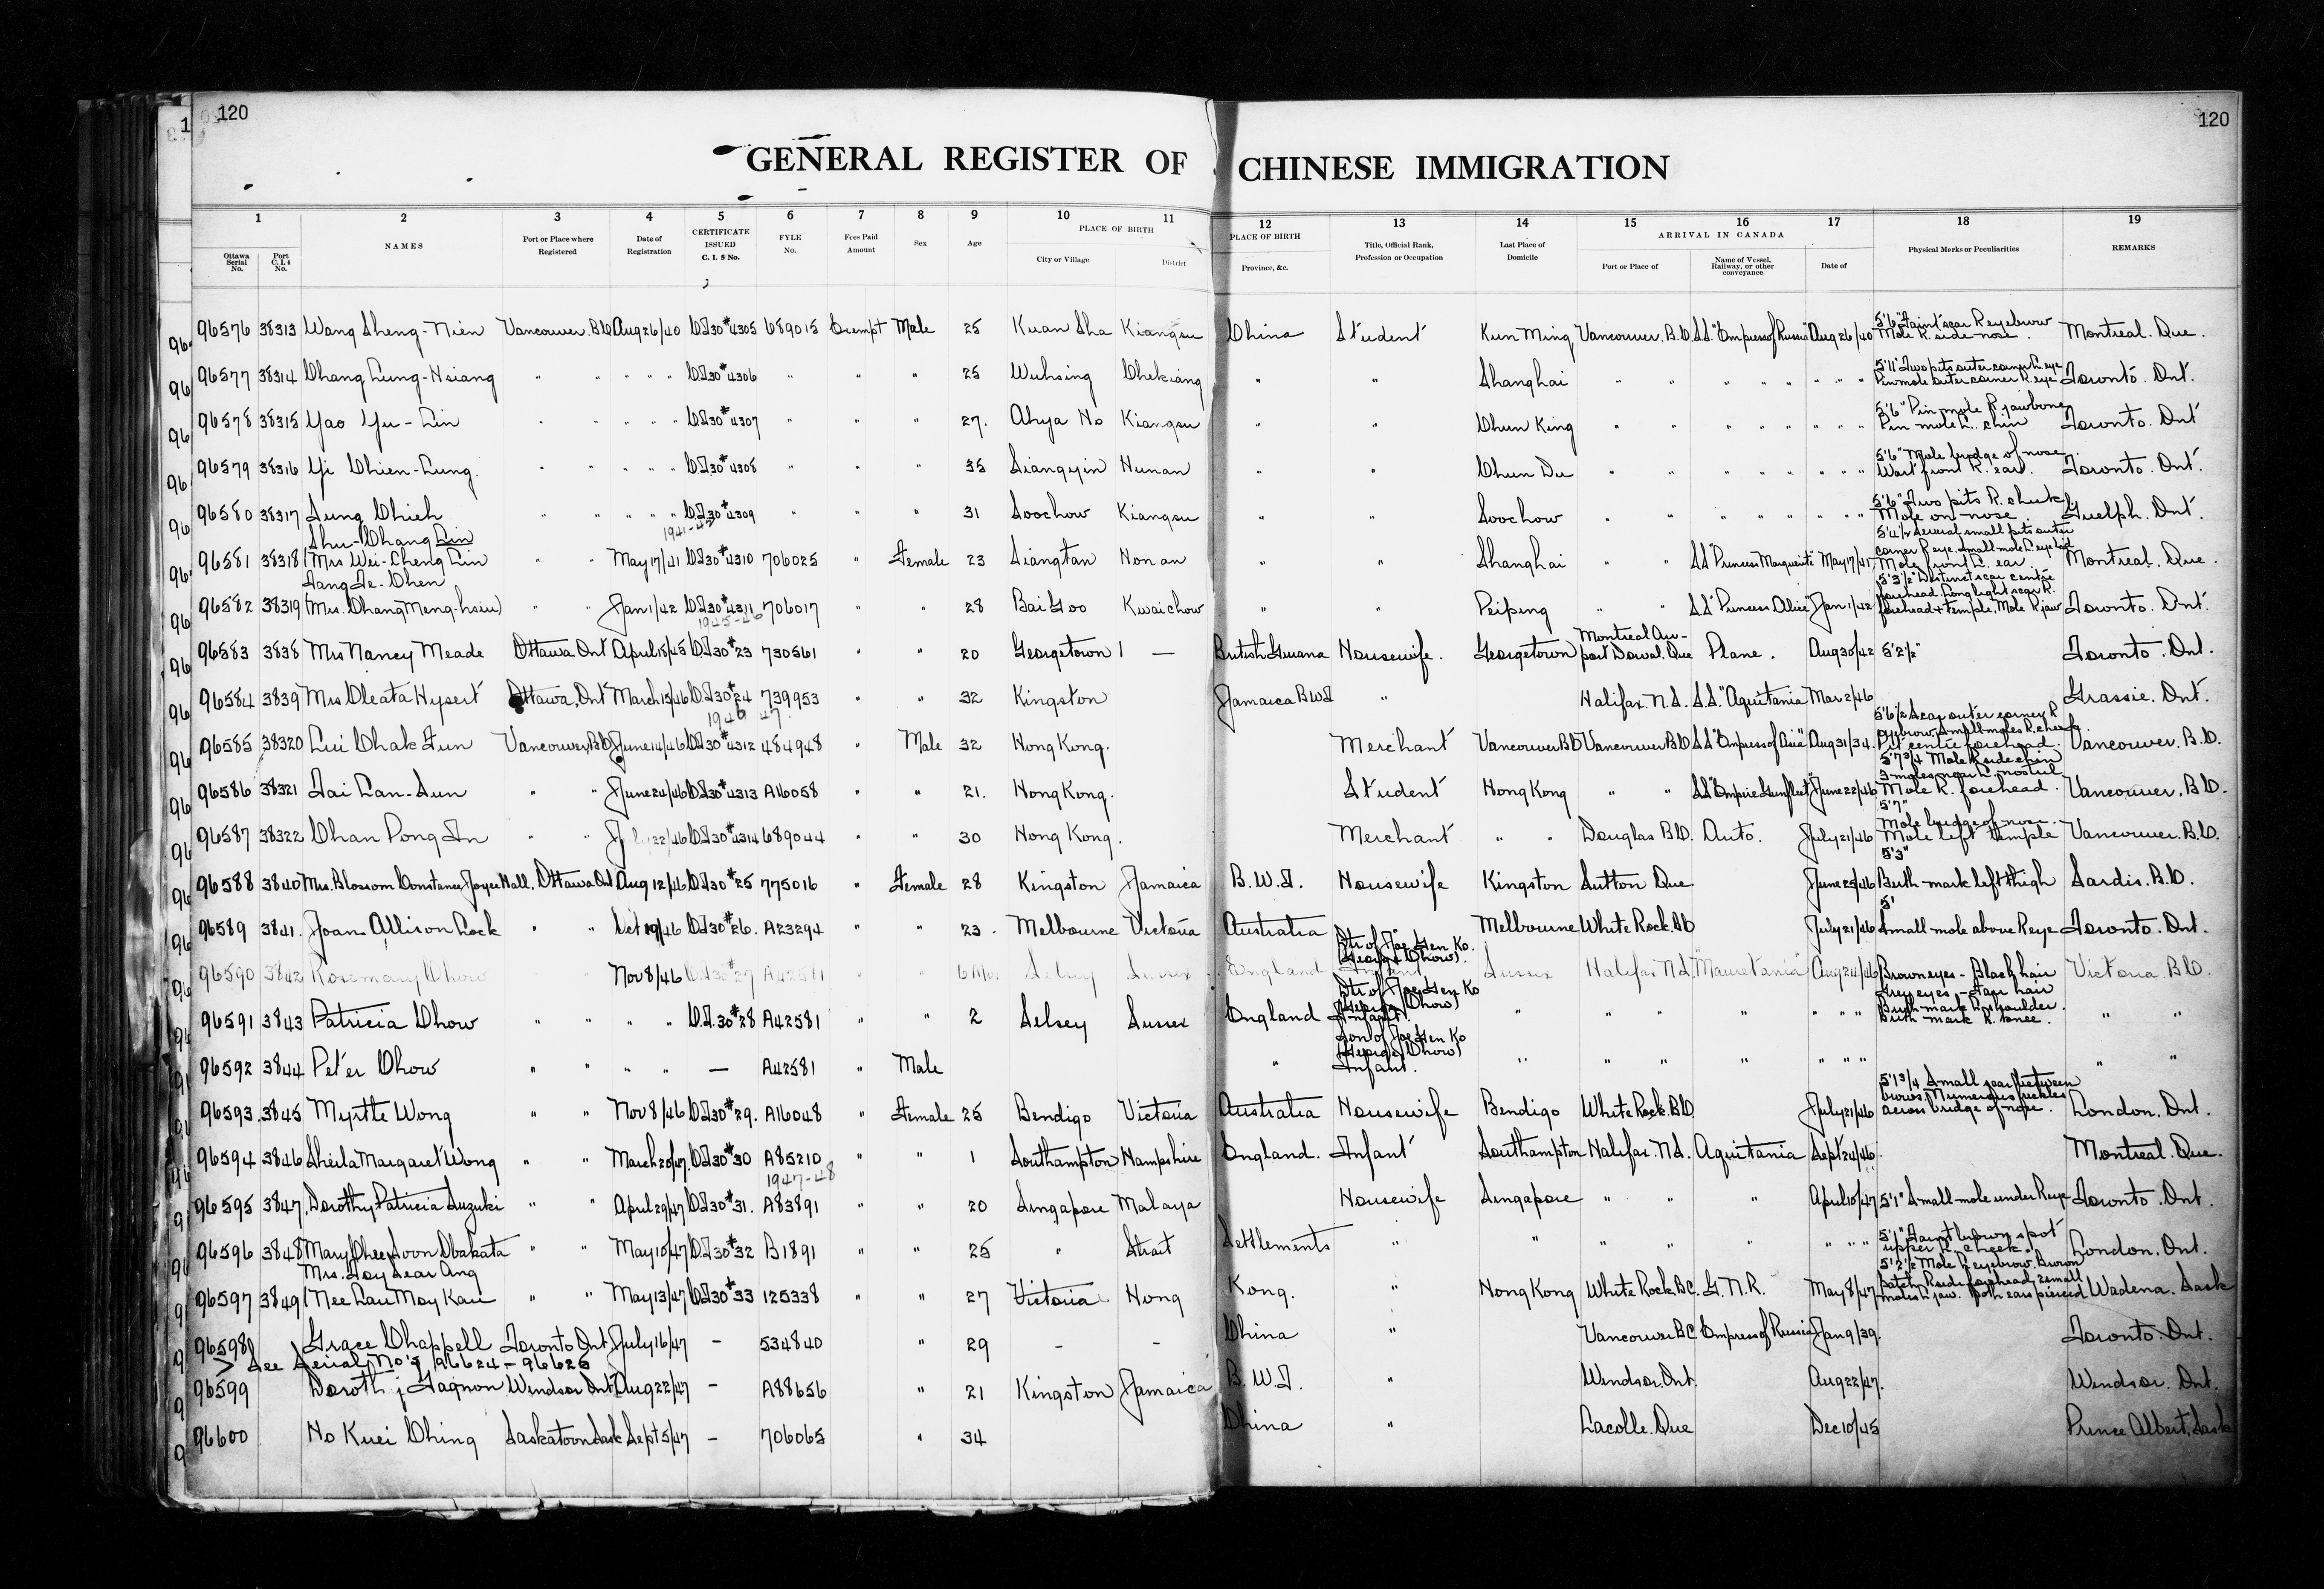 120
120
GENERAL REGISTER OF CHINESE IMMIGRATION
1 2 3 4 5 6 7 8 9 10 11 12 13 14 15 16 17 18 19
Ottawa Serial No. Port C.I.4 No. NAMES Port or Place where Registered Date of Registration CERTIFICATE ISSUED C. I. 5 No. FYLE No. Fees Paid Amount Sex Age PLACE OF BIRTH City or Village District PLACE OF BIRTH Province, &c. Title, Official Rank, Profession or Occupation Last Place of Domicile ARRIVAL IN CANADA Port or Place of Name of Vessel, Railway, or other conveyance Date of Physical Marks or Peculiarities REMARKS
96576 38313 Wang Sheng-Nien Vancouver. B.C. Aug 26/40 C.I.30 #4305 689015 Exempt Male 25 Kuan Sha Kiangsu China Student Kun Ming Vancouver. B.C. S.S. "Empress of Russia" Aug 26/40 5'6" Faint scar R eyebrow Mole R. side nose. Montreal. Que.
96577 38314 Chang Lung-Hsiang " " " " " C.I.30 #4306 " " " 25 Wuhsing Chekiang " " Shanghai " " " " " " " " 5'11" Two pits outer corner L. eye Pinmole outer corner R. eye Toronto. Ont.
96578 38315 Yao Yu-Lin " " " " " C.I.30 #4307 " " " 27. Kiangsu " " Chun King " " " " " " " " 5'6" Pin mole R. jawbone Pin mole L. chin Toronto. Ont
96579 38316 Yi Chien-Lung. " " " " " C.I.30 #4308 " " " 35 Siangyin Hunan " " Chun Du " " " " " " " " 5'6" Mole bridge of nose. Wart front R. ear. Toronto. Ont.
96580 38317 Sung Chieh " " " " " C.I.30 #4309 " " " 31 Soochow Kiangsu " " Soochow " " " " " " " " 5'6" Two pits R. cheek Mole on nose. Guelph. Ont.
1941-42
Shu-Chang Lin
96581 38318 (Mrs Wei-Cheng Lin " " May 17/41 C.I.30 #4310 706025 " Female 23 Siangtan Honan " " Shanghai " " S.S "Princess Marguerite" May 17/41 5'4½ Several small pits outer corner R eye. Small mole L. eyelid Mole front L. ear Montreal. Que.
96582 38319 (Mrs. Chang Meng-hsiu) " " Jan 1/42 C.I.30 #4311 706017 " " 28 Kwaichow " Peiping " " S.S "Princess Alice" Jan 1/42 5'3½" Distinct scar centre forehead. Long light scar R. forehead & temple. Mole R jaw Toronto. Ont.
1945-46
96583 3838 Mrs Nancy Meade Ottawa Ont April 18/45 C.I.30 #23 730561 " " 20 Georgetown — British Guiana Housewife. Georgetown Montreal Air-port Dorval. Que Plane. Aug 30/42 5'2½" Toronto. Ont.
96584 3839 Mrs Cleata Hysert Ottawa, Ont March 15/46 C.I.30 #24 739953 " " 32 Kingston Jamaica B.W.I " Halifax. N.S. S.S. "Aquitania Mar 2/46 Grassie. Ont.
1946 47.
96585 38320 Lui Chak Fun Vancouver, B.C. June 14/46 C.I.30 #4312 484948 " Male 32 Hong Kong. Merchant Vancouver B.C Vancouver B.C. S.S "Empress of Asia" Aug 31/34. 5'6½ Scar outer corner R eyebrow. Small moles R. cheek. Pit centre forehead. Vancouver. B.C.
96586 38321 Tai Lan-Sun " " June 24/46 C.I.30 #4313 A16058 " " 21. Hong Kong. Student Hong Kong " " S.S "Empire June 22/46 5'7¾ Mole R side chin 3 moles near L. nostril Mole R. forehead. Vancouver. B.C.
96587 38322 Chan Pong In " " July 22/46 C.I.30 #4314 689044 " " 30 Hong Kong. Merchant " " Douglas B.C. Auto. July 21/46 5'7" Mole bridge of nose. Mole left temple Vancouver. B.C.
96588 3840 Mrs. Blossom Constance Joyce Hall. Ottawa Ont Aug 12/46 C.I.30 #25 775016 " Female 28 Kingston Jamaica B.W.I. Housewife Kingston Sutton Que June 25/46 5'3" Birth mark left thigh Sardis. B.C.
96589 3841. Joan Allison Lock " " Oct 19/46 C.I.30 #26. A23294 " " 23. Melbourne Victoria Australia Melbourne White Rock. BC July 21/46 5' Small mole above R eye Toronto. Ont.
96590 3842 Rosemary Chow Nov 8/46 C.I.30 #27 A42581 " " 6 Mos Selsey Sussex England Dtr of Joe Gen Ko. (George Chow). Infant Sussex Halifax N.S "Mauretania" Aug 24/46 Brown eyes - Black hair Victoria B.C.
96591 3843 Patricia Chow " " " " C.I.30 #28 A42581 " " 2 Selsey Sussex England Dtr of Joe Gen Ko (George Chow) Infant. " " " " " " " Grey eyes - Fair hair Birth mark R. shoulder. Birth mark R. knee. " "
96592 3844 Peter Chow " " " " — A42581 " Male " Son of Joe Gen Ko (George Chow) Infant. " " " " " " " " "
96593. 3845 Myrtle Wong " " Nov 8/46 C.I.30 #29. A16048 " Female 25 Bendigo Victoria Australia Housewife Bendigo White Rock. B.C. July 21/46 5'1¾ Small scar between brows. Numerous freckles across bridge of nose. London. Ont.
96594 3846 Sheila Margaret Wong " " March 20/47. C.I.30 #30 A85210 " " 1 Southampton Hampshire England. Infant Southampton Halifax. N.S. Aquitania Sept 24/46. Montreal. Que.
1947-48
96595 3847. Dorothy Patricia Suzuki " " April 29/47 C.I.30 #31. A83891 " " 20 Singapore Malaya Housewife Singapore " " " April 10/47 5'1" Small mole under R eye Toronto. Ont
96596 3848 Mary Chee Soon Obakata " " May 10/47 C.I.30 #32 B1891 " " 25 " Strait Settlements " " " " " " " " 5'1" Faint brown spot upper R. cheek London. Ont.
Mrs. Hoy Sear Ang
96597 3849 (Nee Lau Moy Kau " " May 13/47 C.I.30 #33 125338 " " 27 Victoria Hong Kong. " Hong Kong White Rock, B.C. G.N.R. May 8/47 5'2½ Mole R eyebrow. Brown patch R side forehead, 2 small moles L jaw. Both ears pierced Wadena. Sask
96598 Grace Chappell Toronto Ont. July 16/47 - 534840 " 29 - - China " Vancouver B.C. Empress of Russia Jan 9/39. Toronto. Ont.
> See Serial No's 96624 - 96625
96599 Dorothy Gagnon Windsor Ont. Aug 22/47 - A88656 " 21 Kingston Jamaica B.W.I. " Windsor. Ont. Aug 22/47. Windsor. Ont.
96600 Ho Kuei Ching Saskatoon Sask Sept 5/47 - 706065 " 34 China " Lacolle. Que Dec 10/45 Prince Albert. Sask